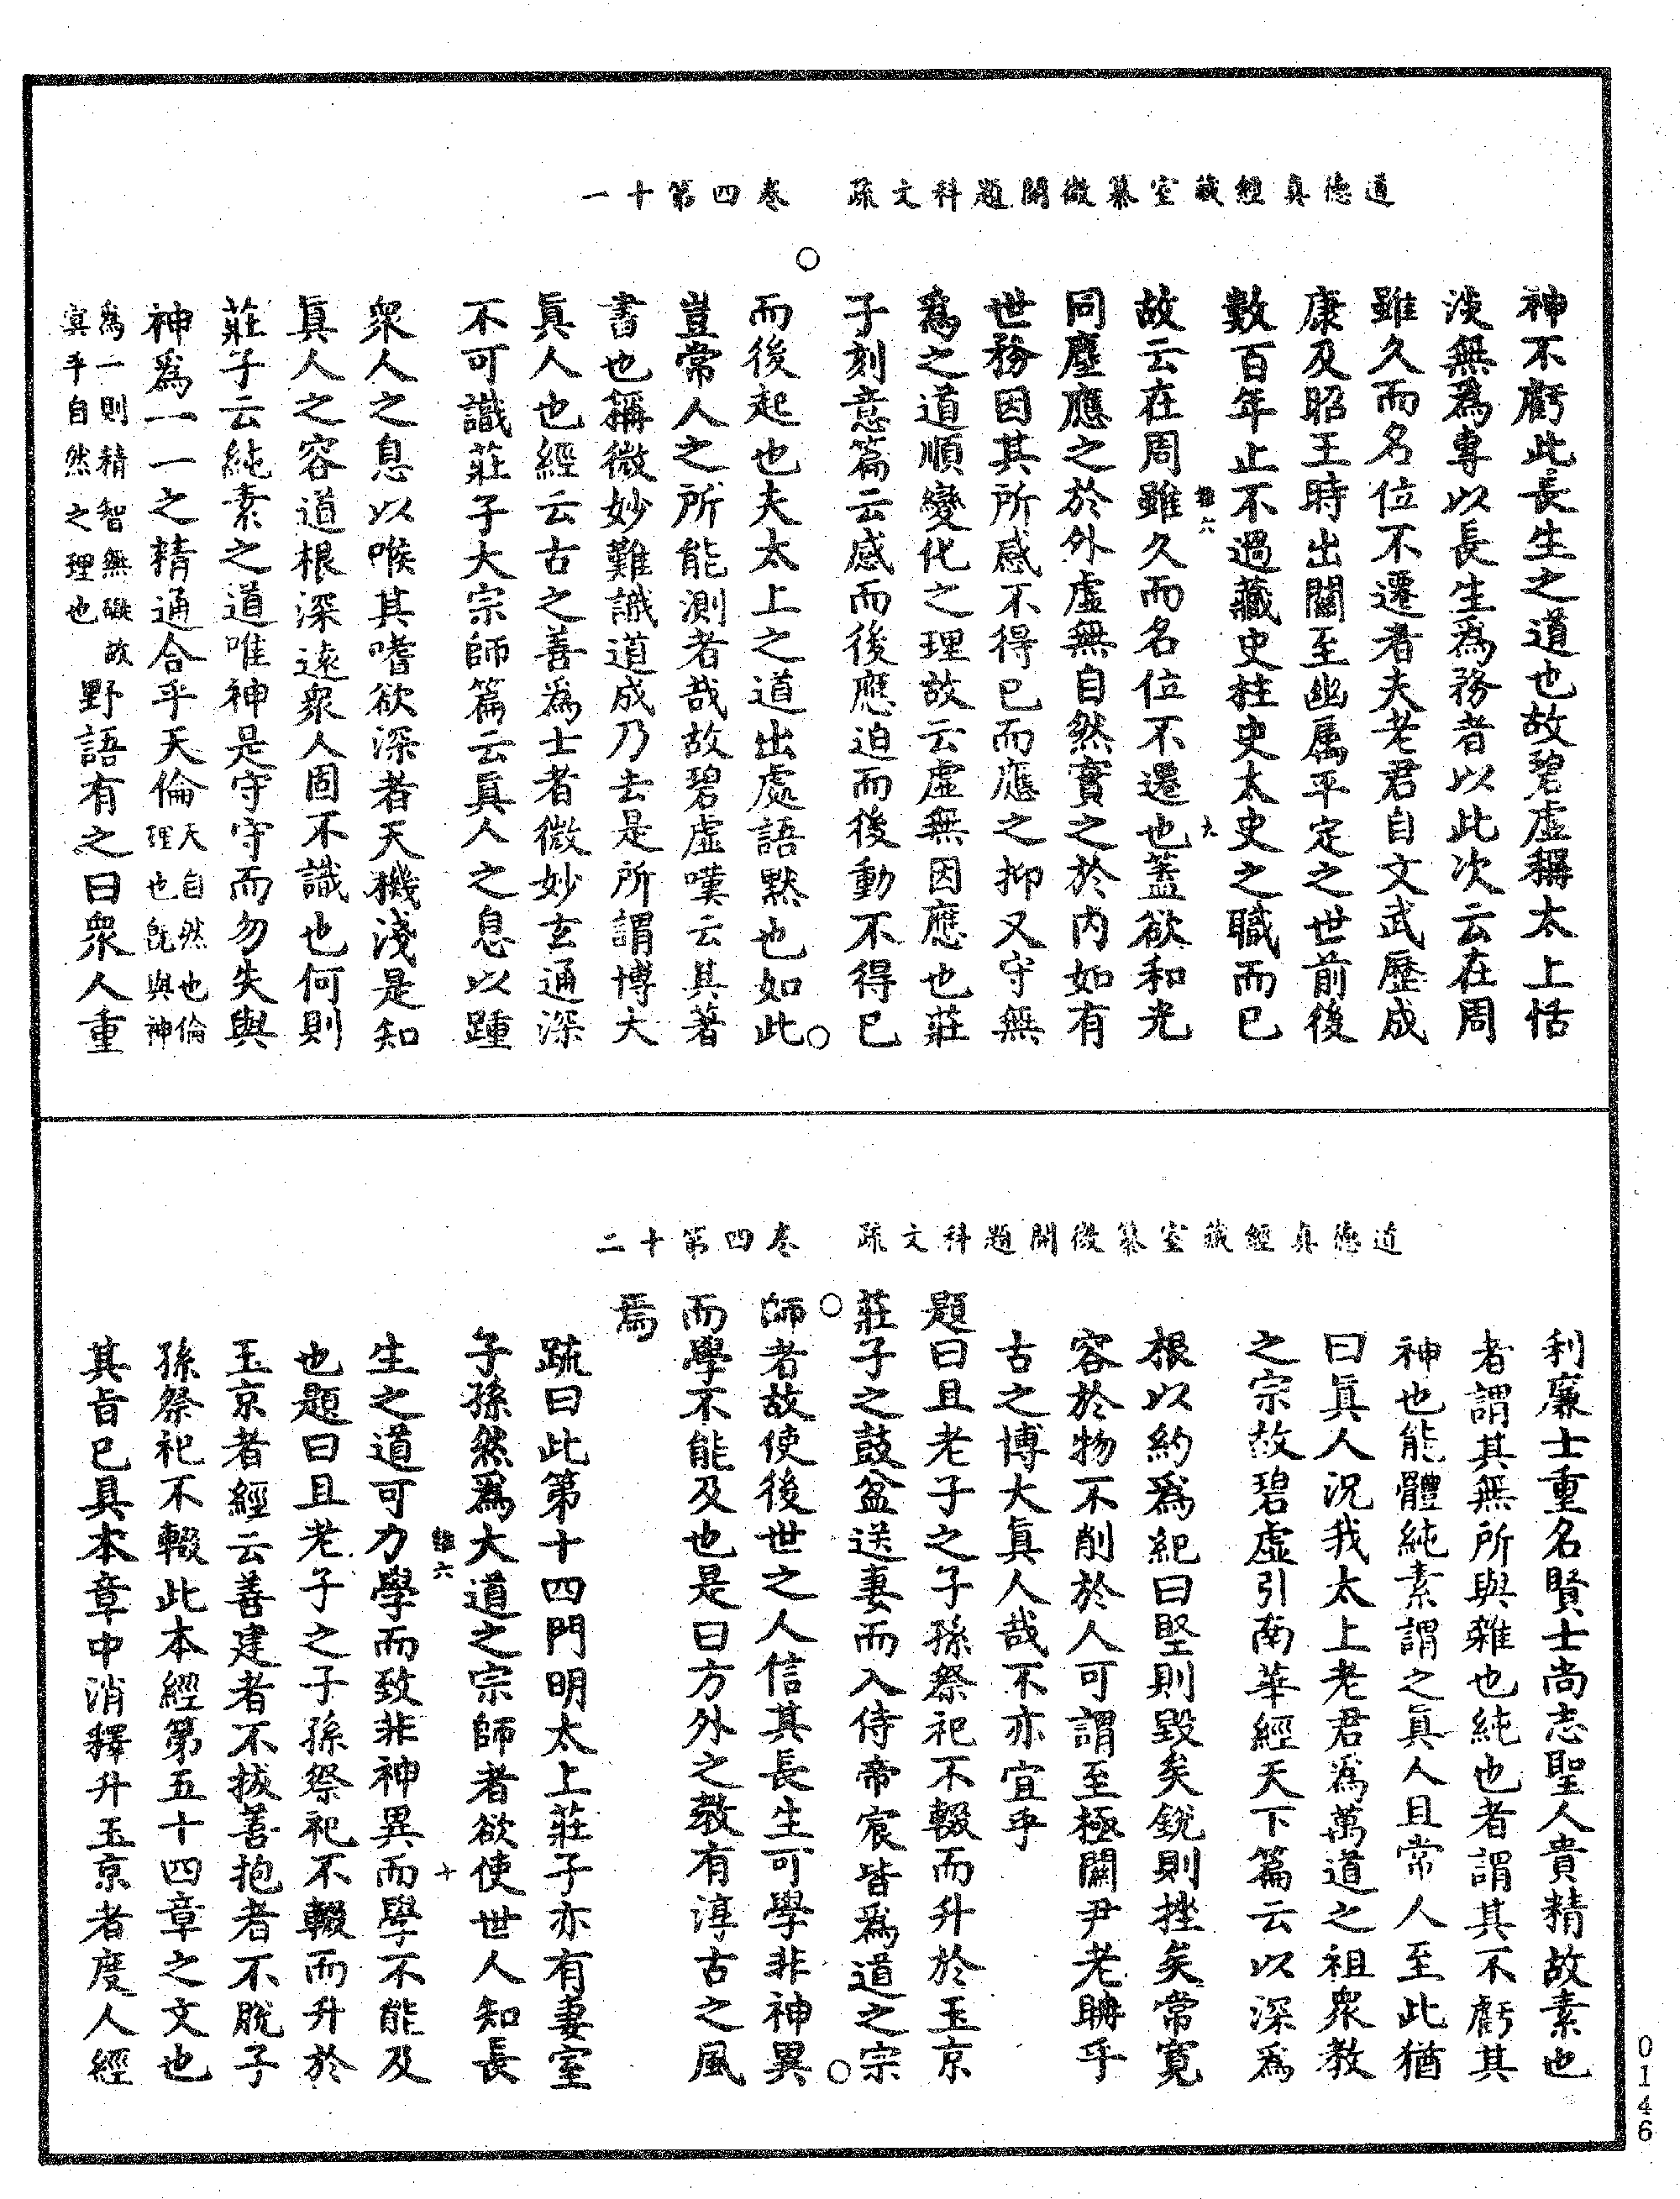 道德眞經藏室纂微開題科文疏　卷四第十一
神不虧此長生之道也故碧虛稱太上恬
淡無爲專以長生爲務者以此次云在周
雖久而名位不遷者夫老君自文武歷成
康及昭王時出關至幽厲平定之世前後
數百年止不過藏史柱史太史之職而已
故云在周雖久而名位不遷也蓋欲和光
同塵應之於外虛無自然實之於內如有
世務因其所感不得已而應之抑又守無
爲之道順變化之理故云虛無因應也莊
子刻意篇云感而後應迫而後動不得已
而後起也夫太上之道出處語默也如此
豈常人之所能測者哉故碧虛嘆云其著
書也稱微妙難識道成乃去是所謂博大
眞人也經云古之善爲士者微妙玄通深
不可識莊子大宗師篇云眞人之息以踵
衆人之息以喉其嗜欲深者天機淺是知
眞人之容道根深遠衆人固不識也何則
莊子云純素之道唯神是守守而勿失與
神爲一一之精通合乎天倫天自然也倫理也旣與神
爲一則精智無礙故冥乎自然之理也野語有之曰衆人重
道德眞經藏室纂微開題科文疏　卷四第十二
利廉士重名賢士尚志聖人貴精故素也
者謂其無所與雜也純也者謂其不虧其
神也能體純素謂之眞人且常人至此猶
曰眞人況我太上老君爲萬道之祖衆教
之宗故碧虛引南華經天下篇云以深爲
根以約爲紀曰堅則毀矣銳則挫矣常寬
容於物不削於人可謂至極關尹老聃乎
古之博大眞人哉不亦宜乎
題曰且老子之子孫祭祀不輟而升於玉京
莊子之鼓盆送妻而入侍帝宸皆爲道之宗
師者故使後世之人信其長生可學非神異
而學不能及也是曰方外之教有淳古之風
焉
疏曰此第十四門明太上莊子亦有妻室
子孫然爲大道之宗師者欲使世人知長
生之道可力學而致非神異而學不能及
也題曰且老子之子孫祭祀不輟而升於
玉京者經云善建者不拔善抱者不脫子
孫祭祀不輟此本經第五十四章之文也
其旨已具本章中消釋升玉京者度人經
0146